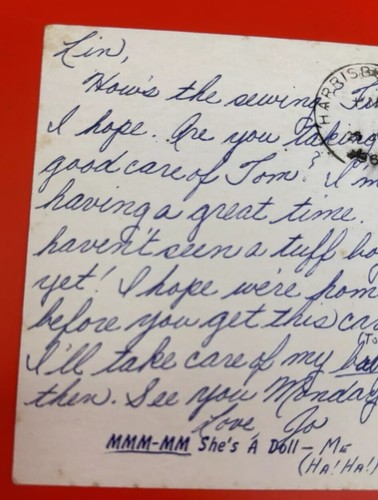 Lin,
How's the sewing
I hope. Are you taking
good care of Tom? I'm
having a great time.
haven't seen a tuff
yet! I hope we're home
before you get this card
I'll take care of my
then. See you Monday
Love, Jo
MMM-MM She's A Doll - Me
(HA! HA!)
HARRISB